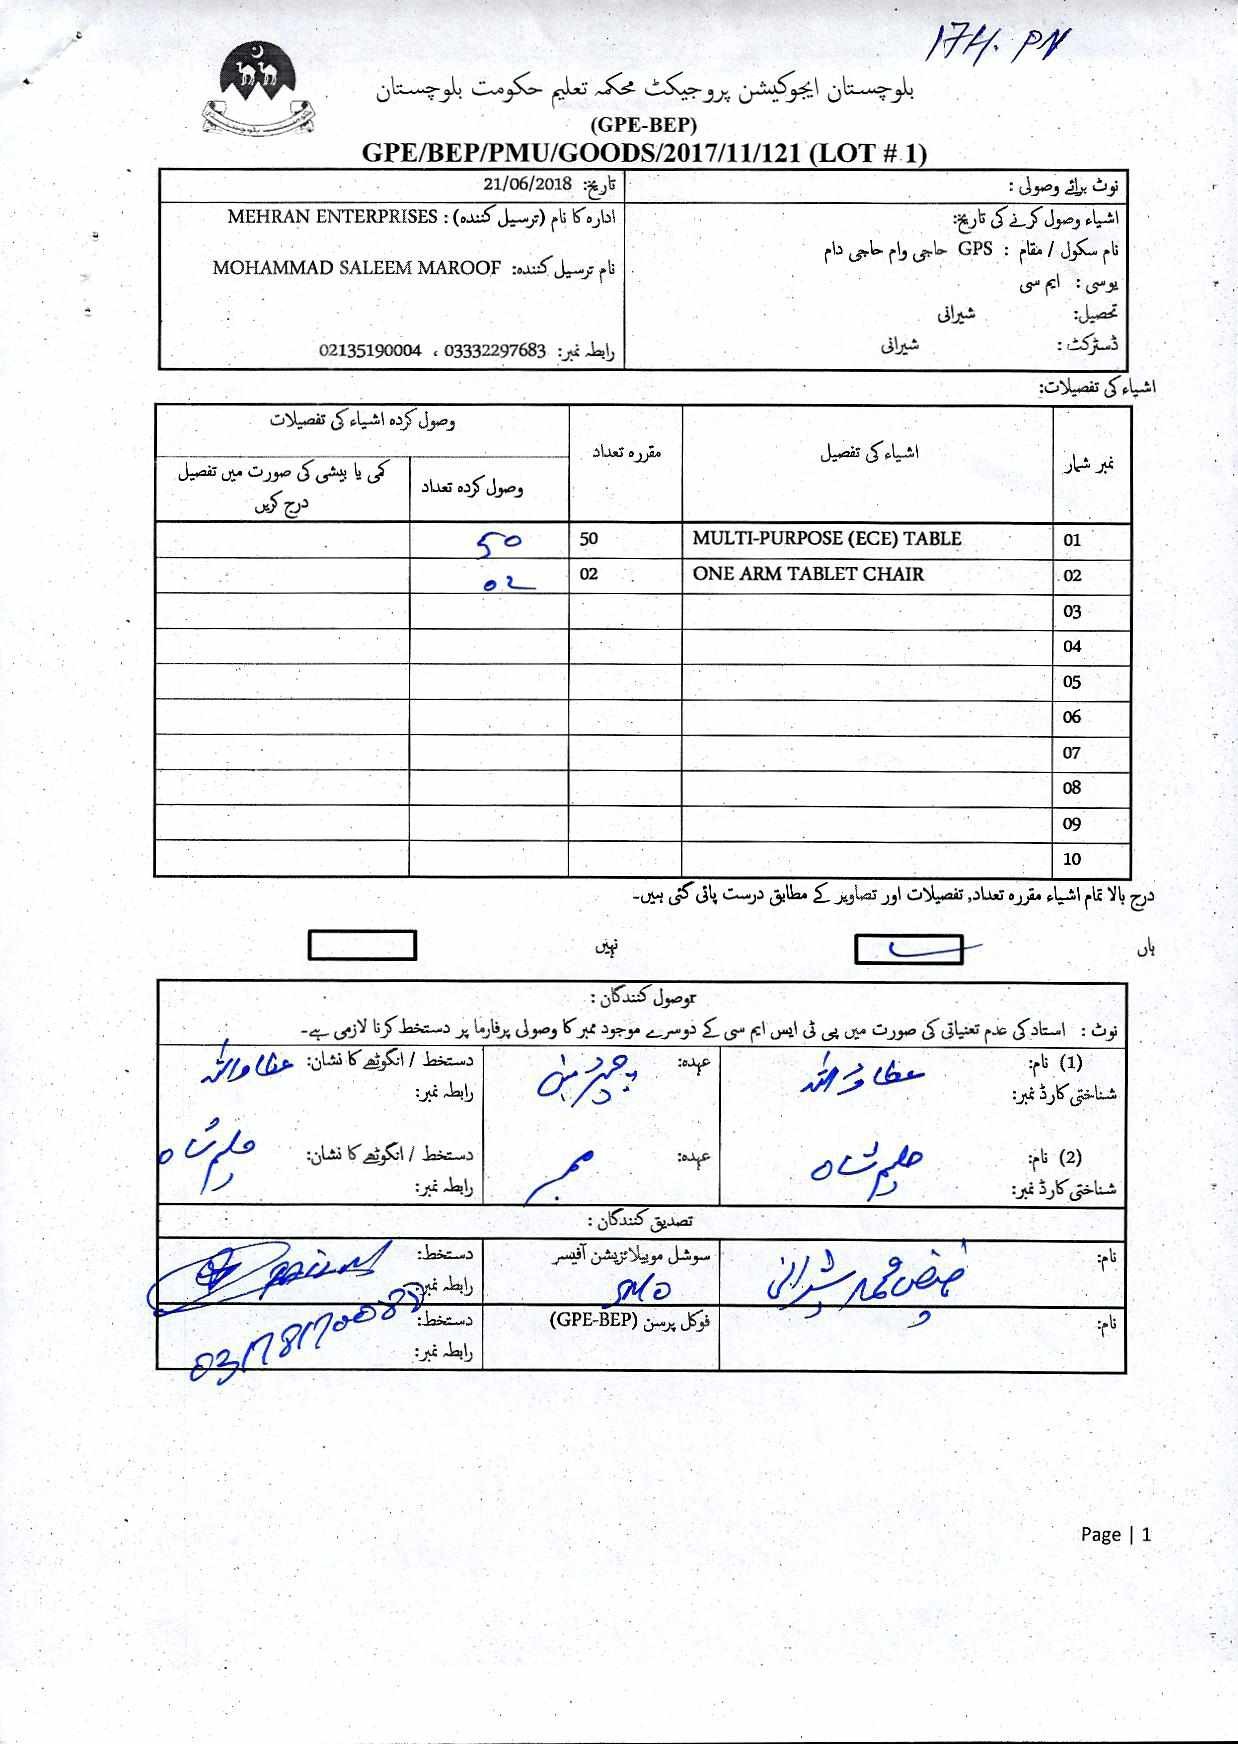 174. PN
بلوچستان ایجوکیشن پروجیکٹ محکمہ تعلیم حکومت بلوچستان
(GPE-BEP)
GPE/BEP/PMU/GOODS/2017/11/121 (LOT # 1)
نوٹ برائے وصولی :
اشیاء وصول کرنے کی تاریخ:
نام سکول / مقام : GPS حاجی وام حاجی دام
یوسی : ایم سی
تحصیل: شیرانی
ڈسٹرکٹ : شیرانی
تاریخ: 21/06/2018
ادارہ کا نام (ترسیل کنندہ) : MEHRAN ENTERPRISES
نام ترسیل کنندہ: MOHAMMAD SALEEM MAROOF
رابطہ نمبر: 03332297683 ، 02135190004
اشیاء کی تفصیلات:
نمبر شمار اشیاء کی تفصیل مقررہ تعداد وصول کردہ اشیاء کی تفصیلات
وصول کردہ تعداد کمی یا بیشی کی صورت میں تفصیل درج کریں
01 MULTI-PURPOSE (ECE) TABLE 50 50
02 ONE ARM TABLET CHAIR 02 02
03
04
05
06
07
08
09
10
درج بالا تمام اشیاء مقررہ تعداد, تفصیلات اور تصاویر کے مطابق درست پائی گئی ہیں۔
ہاں نہیں
وصول کنندگان :
نوٹ : استاد کی عدم تعنیاتی کی صورت میں پی ٹی ایس ایم سی کے دوسرے موجود ممبر کا وصولی پرفارما پر دستخط کرنا لازمی ہے۔
(1) نام: عطاء اللہ عہدہ: چیرمین دستخط / انگوٹھے کا نشان: عطاء اللہ
شناختی کارڈ نمبر: رابطہ نمبر:
(2) نام: حلیم شاہ عہدہ: ممبر دستخط / انگوٹھے کا نشان: حلیم شاہ
شناختی کارڈ نمبر: رابطہ نمبر:
تصدیق کنندگان :
نام: فیض محمد شیرانی سوشل موبیلائزیشن آفیسر دستخط:
SMO رابطہ نمبر:
نام: فوکل پرسن (GPE-BEP) دستخط:
رابطہ نمبر:
Page | 1